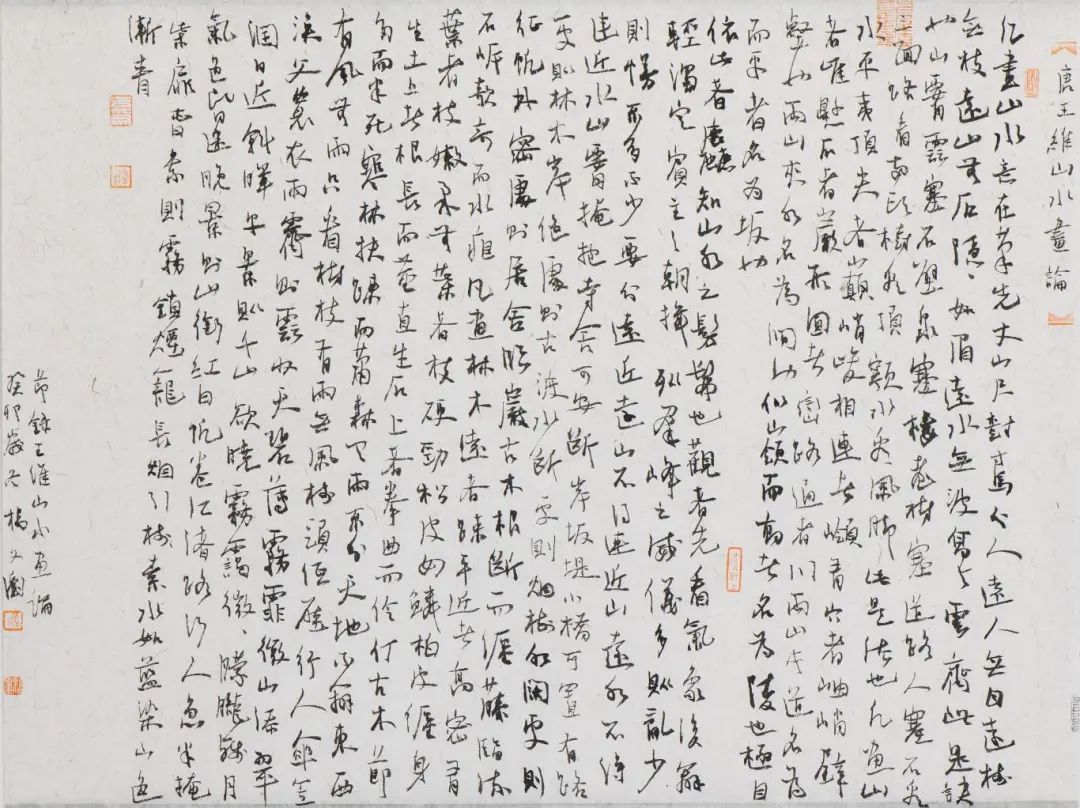 唐王維山水畫論
凡畫山水意在筆先丈山尺樹寸馬分人遠人無目遠樹
無枝遠山無石隱隱如眉遠水無波高與雲齊此是訣
也山腰雲塞石壁泉塞樓臺樹塞道路人塞石看
三面路看兩頭樹看頂顛水看風脚此是法也凡畫山
水平夷頂尖者巔峭峻相連者嶺有穴者岫峭壁
者崖懸石者巖形圓者巒路通者川兩山夾道名為
壑也兩山夾水名為澗也似山嶺而高者名為陵也極目
而平者名為坂也
依此者麤知山水之髣髴也觀者先看氣象後辨
輕濁定賓主之朝揖列羣峰之威儀多則亂少
則慢不多不少要分遠近遠山不得連近山遠水不得
連近水山要掩抱寺舍可安斷岸坂堤小橋可置有路
處則林木岸絕處則古渡水斷處則烟樹水闊處則
征帆林密處則居舍臨巖古木根斷而纏藤臨流
石岸欹奇而水痕凡畫林木遠者疎平近者高密有
葉者枝嫩柔無葉者枝硬勁松皮如鱗柏皮纏身
生土上者根長而莖直生石上者拳曲而伶仃古木節
多而半死寒林扶疎而蕭森有雨不分天地不辨東西
有風無雨只看樹枝有雨無風樹頭低壓行人傘笠
漁父蓑衣雨霽則雲收天碧薄霧霏微山添翠
潤日近斜暉早景則千山欲曉霧靄微微朦朧殘月
氣色昏迷晚景則山銜紅日帆卷江渚路行人急半掩
柴扉春景則霧鎖煙籠長烟引樹素水如藍染山色
漸青
節錄王維山水畫論
癸卯歲冬楊